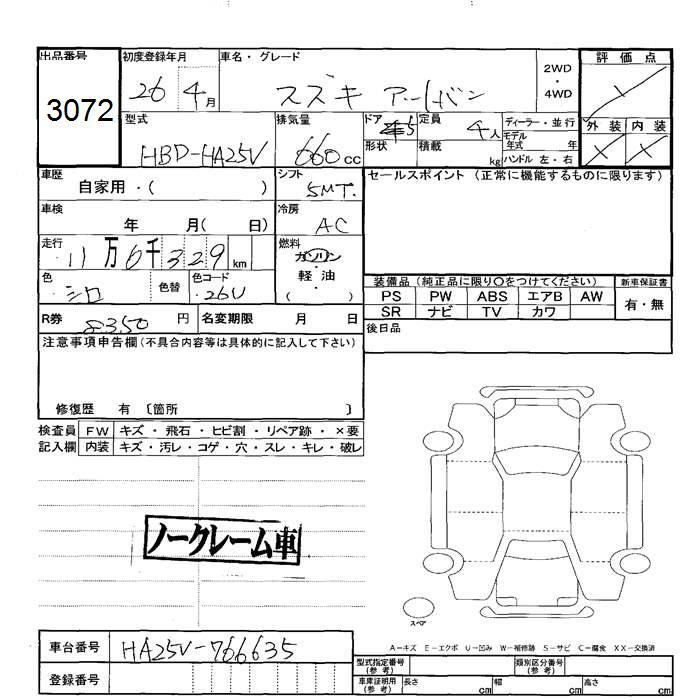 出品番号 初度登録年月 車名・グレード 2WD・4WD 評価点
3072 26 4月 スズキ アルトバン
型式 排気量 ドア 5 定員 4人 ディーラー・並行 外装 内装
HBD-HA25V 660cc 形状 積載 kg モデル年式 年 ハンドル 左・右
車歴 自家用・( ) シフト 5MT. セールスポイント (正常に機能するものに限ります)
車検 年 月( 日) 冷房 AC
走行 11万6千329km 燃料 ガソリン・軽油・( )
色 シロ 色替 色コード 26U 装備品 (純正品に限り○をつけてください) 新車保証書
PS PW ABS エアB AW 有・無
SR ナビ TV カワ
R券 8350円 名変期限 月 日 後日品
注意事項申告欄(不具合内容等は具体的に記入して下さい)
修復歴 有 〔箇所 〕
検査員 FW キズ・飛石・ヒビ割・リペア跡・×要
記入欄 内装 キズ・汚レ・コゲ・穴・スレ・キレ・破レ
ノークレーム車
スペア
A－キズ E－エクボ U－凹み W－補修跡 S－サビ C－腐食 XX－交換済
車台番号 HA25V-766635
登録番号
型式指定番号(参考) 類別区分番号(参考)
車庫証明用(参考) 長さ cm 幅 cm 高さ cm